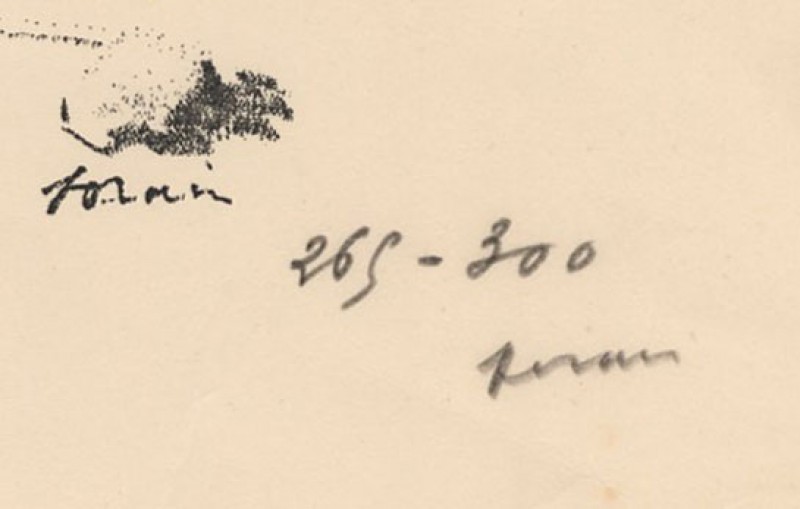 forain
265 - 300
forain